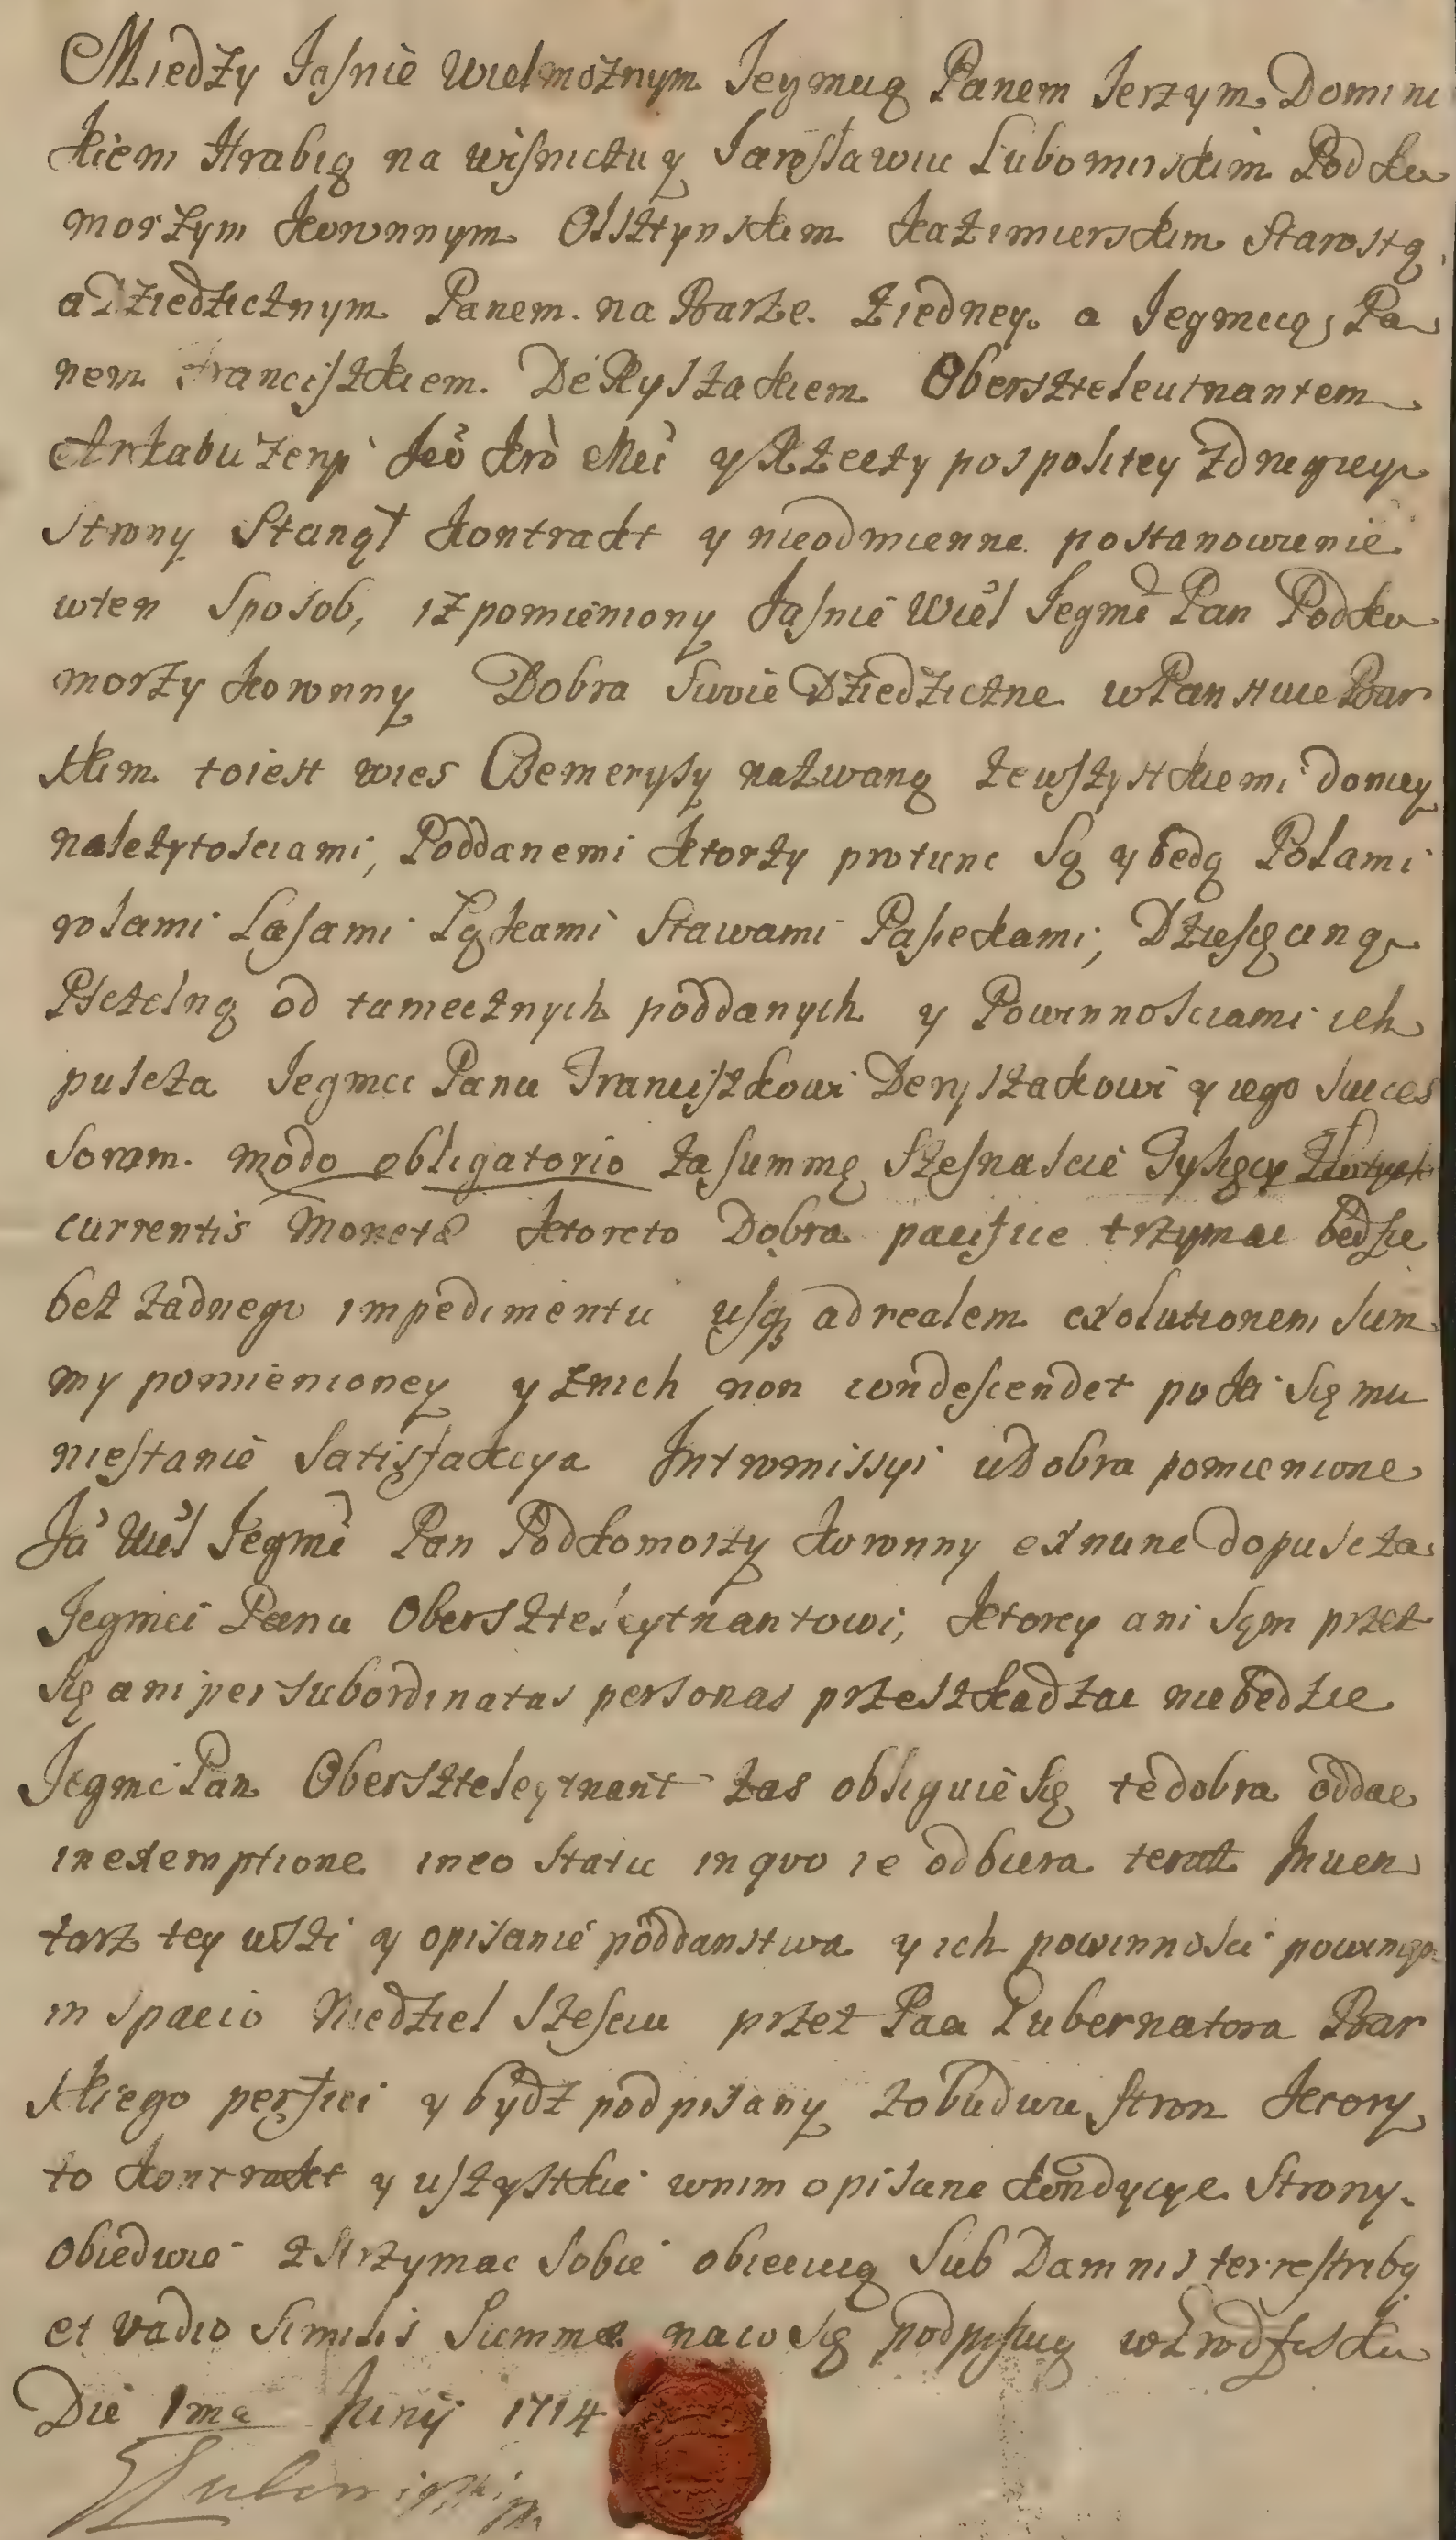 Między Jaśnie Wielmożnym Jeymcią Panem Jerzym Domini
kiem Hrabią na wisniczu y Jarosławiu Lubomirskim Podko
morzym koronnym Olsztynskim kazimierskim Starostą
a Dziedzicznym Panem na Barze ziedney a Jegmcią Pa
nem Franciszkiem DeRyszakiem Oberszteleutnantem
Arkabuzeryi Jeo Kro Mci y Rzeczy pospolitey zdrugiey
Strony Stanął kontrakt y nieodmienne postanowienie
wten Sposob, iż pomieniony Jaśnie Wiel Jegmc Pan Podko
morzy koronny Dobra Swoie Dziedziczne wPanstwie Bar
skim toiest wies Bemerysy nazwaną zewszystkiemi doniey
należytosciami, Poddanemi ktorzy protunc Są y będą Polami
rolami Lasami Łąkami Stawami Pasiekami, Dziesięciną
Psczelną od tamecznych poddanych y Powinnosciami ich
puscza Jegmci Panu Franciszkowi Deryszakowi y iego Succes
sorom modo obligatorio zasummę Szesnascie Tysięcy Złotych
currentis Monetæ ktoreto Dobra pacifice trzymac będzie
bez żadnego impedimentu usq adrealem exolutionem Sum
my pomienioney y znich non condescendet poki Się mu
niestanie Satisfakcya Intromissyi wDobra pomienione
Ja Wiel Jegmc Pan Podkomorzy koronny exnunc dopuscza
Jegmci Panu Oberszteleytnantowi, ktorey ani Sam przez
Się ani per subordinatas personas przeszkadzac niebędzie
Jegmc Pan Oberszteleytnant zas obliguie Się tedobra oddac
inexemptione ineo Statu inquo ie odbiera teraz Inwen
tarz tey wszi y opisanie poddanstwa y ich powinnosci powinien
in Spacio Niedziel Szesciu przez Paa Gubernatora Bar
skiego perfici y bydz podpisany zobudwu Stron ktory
to kontrakt y wszystkie wnim opisane kondycye Strony
obiedwie zstrzymac Sobie obiecuią Sub Damnis terrestribq
et vadio Similis Summæ naco Się podpisuią
Die 1ma Junij 1714
Lubomirski